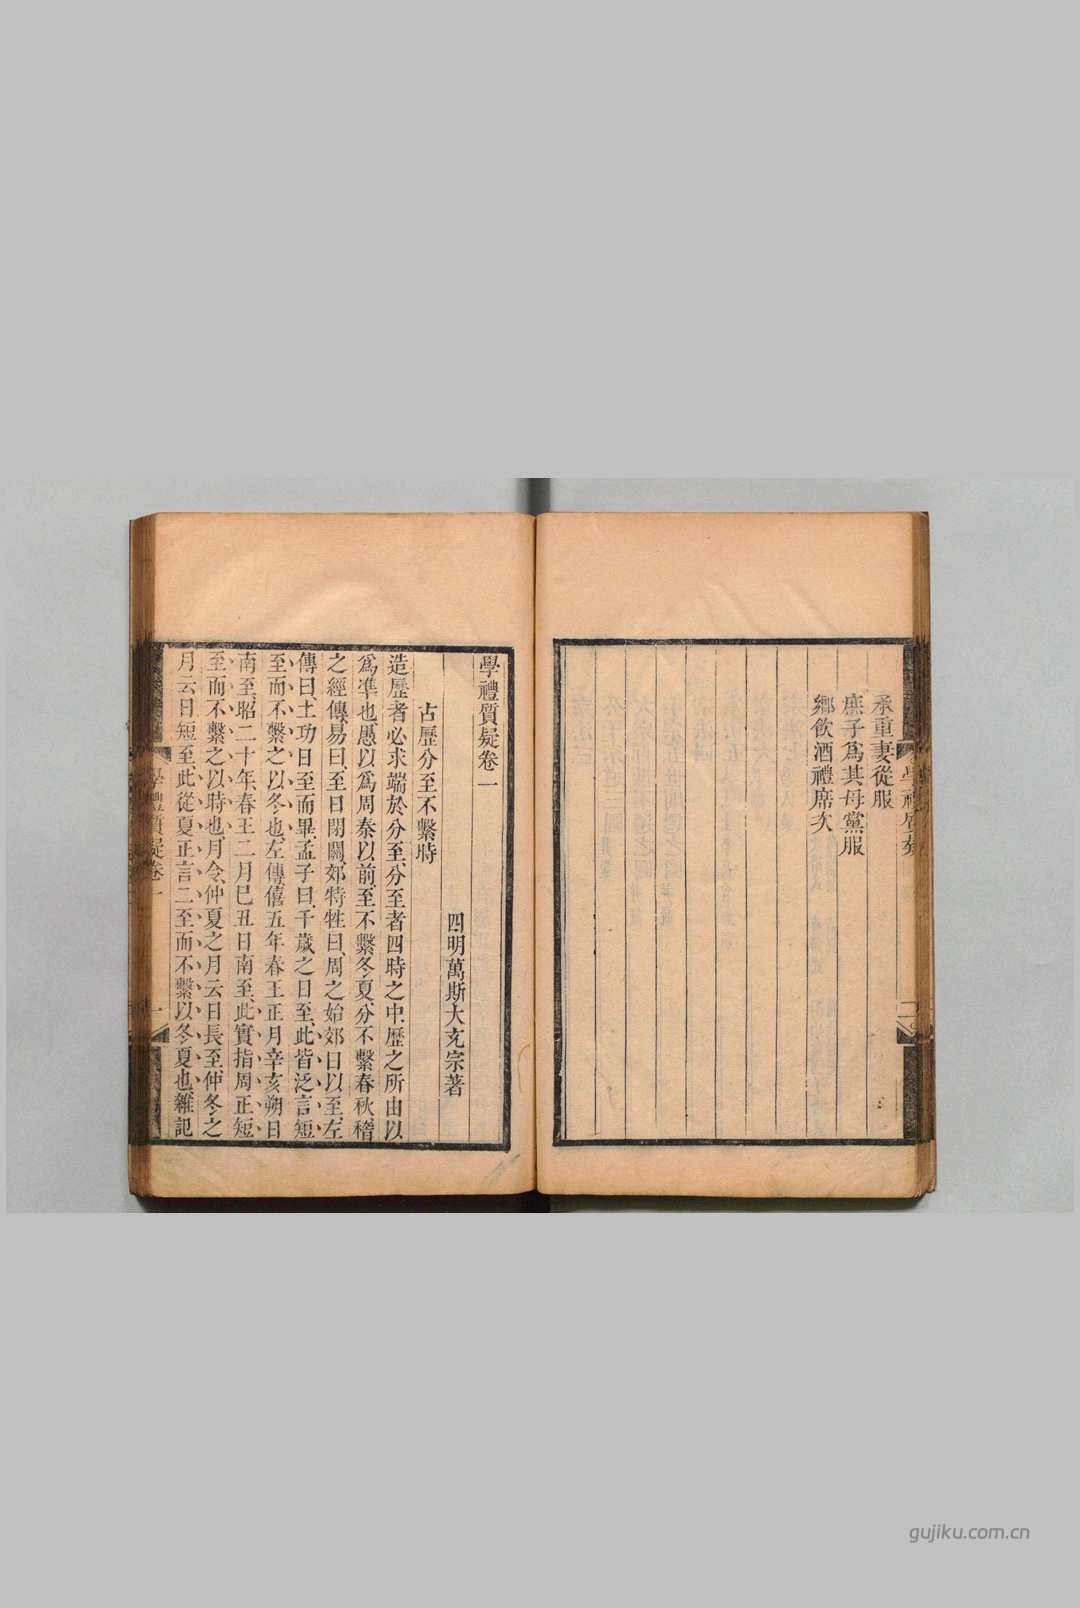 承重妻從服
庶子爲其母黨服
鄉飲酒禮席次
學禮質疑
學禮質疑卷一
四明萬斯大充宗著
古歷分至不繫時
造歷者必求端於分至分至者四時之中歷之所由以
爲準也愚以爲周秦以前至不繫冬夏分不繫春秋稽
之經傳易曰至日閉關郊特牲曰周之始郊日以至左
傳曰土功日至而畢孟子曰千歲之日至此皆泛言短
至而不繫之以冬也左傳僖五年春王正月辛亥朔日
南至昭二十年春王二月己丑日南至此實指周正短
至而不繫之以時也月令仲夏之月云日長至仲冬之
月云日短至此從夏正言二至而不繫以冬夏也雜記
學禮質疑卷一
一
gujiku.com.cn